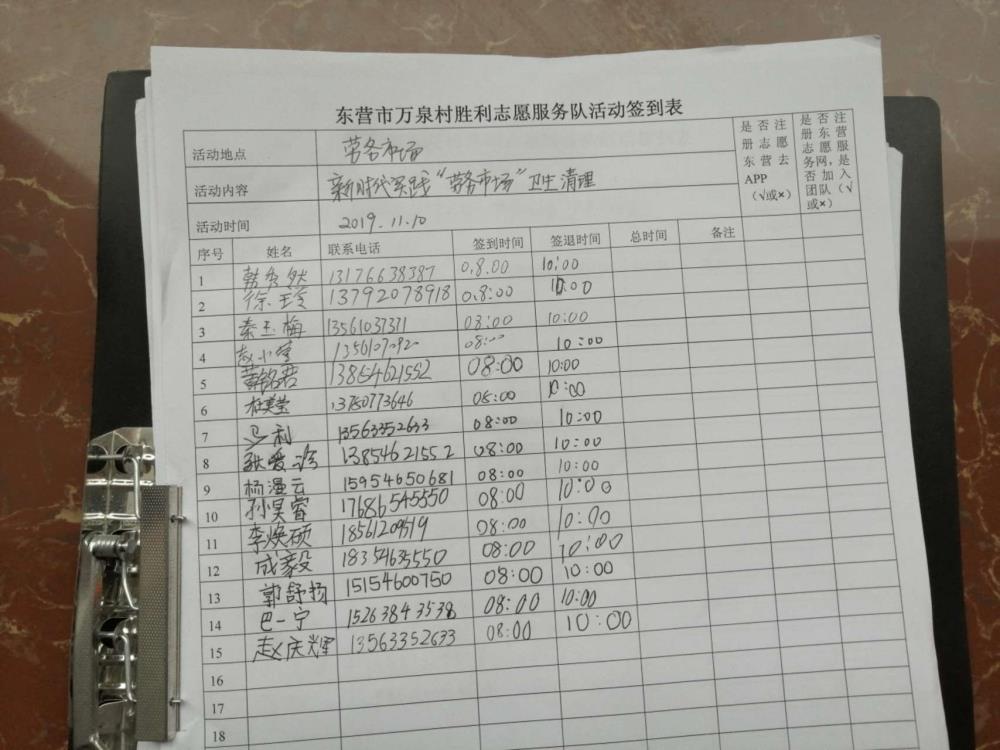 东营市万泉村胜利志愿服务队活动签到表
活动地点 劳务市场
活动内容 新时代实践“劳务市场”卫生清理
活动时间 2019.11.10
是否注册志愿东营去APP（√或×）
是否注册东营志愿服务网，是否加入团队（√或×）
序号 姓名 联系电话 签到时间 签退时间 总时间 备注
1 韩秀然 13176638387 0.8.00 10:00
2 徐玉玲 13792078918 0.8:00 10:00
3 秦玉梅 13561037371 08:00 10:00
4 赵小雪 08:00 10:00
5 黄铭君 13854621552 08:00 10:00
6 杜美莹 08:00 10:00
7 马利 13563352633 08:00 10:00
8 张爱珍 13854621552 08:00 10:00
9 杨漫云 15954650681 08:00 10:00
10 孙昊睿 17686545550 08:00 10:00
11 李焕硕 08:00 10:00
12 成毅 18354635550 08:00 10:00
13 郭舒扬 15154600750 08:00 10:00
14 巴一宁 15263843538 08:00 10:00
15 赵庆辉 13563352633 08:00 10:00
16
17
18